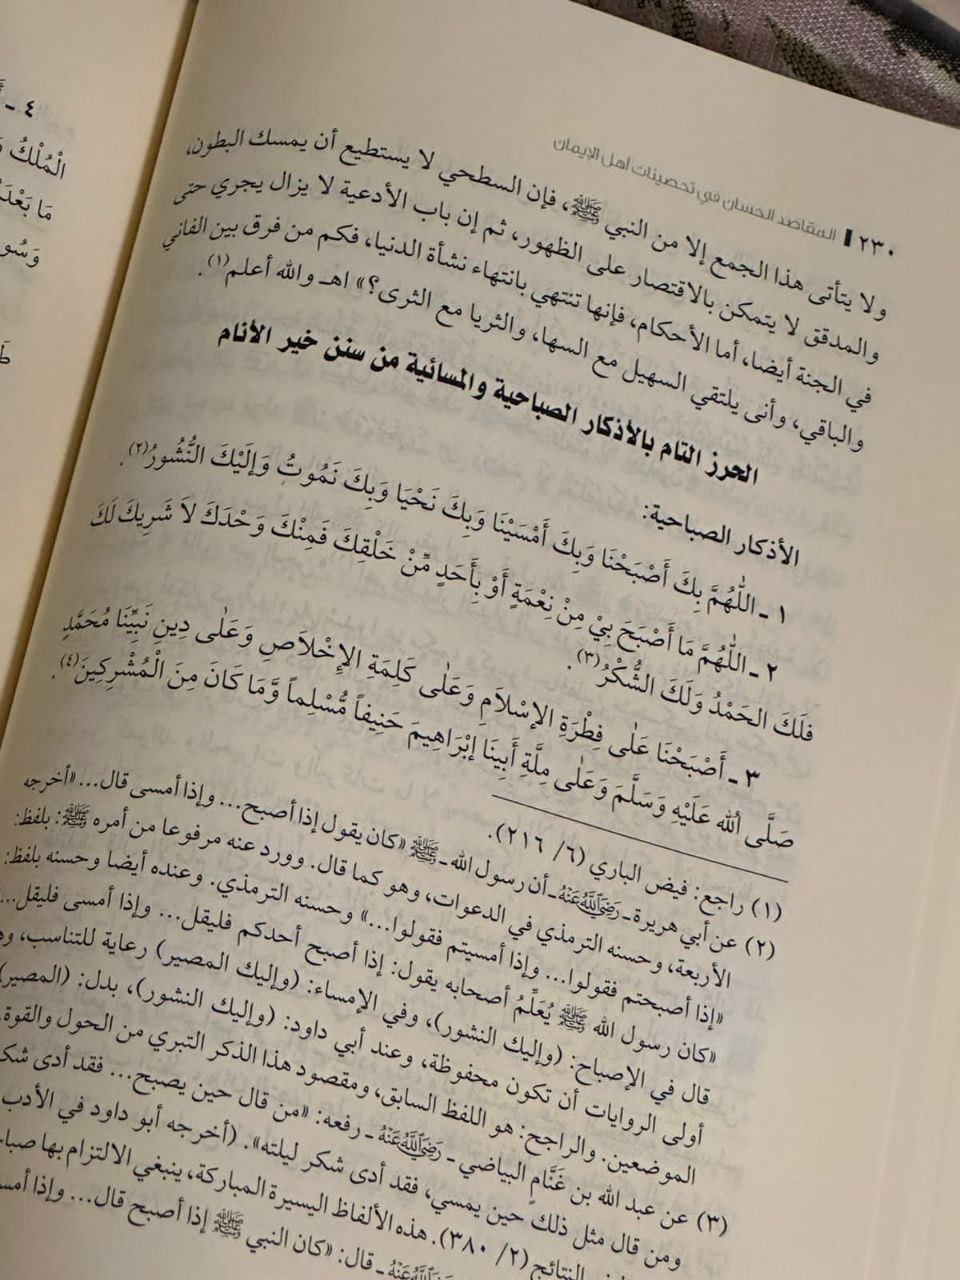 ٢٣٠ المقاصد الحسان في تحصينات أهل الإيمان
ولا يتأتى هذا الجمع إلا من النبي ﷺ، فإن السطحي لا يستطيع أن يمسك البطون،
والمدقق لا يتمكن بالاقتصار على الظهور، ثم إن باب الأدعية لا يزال يجري حتى
في الجنة أيضا، أما الأحكام، فإنها تنتهي بانتهاء نشأة الدنيا، فكم من فرق بين الفاني
والباقي، وأنى يلتقي السهيل مع السها، والثريا مع الثرى؟» اهـ والله أعلم(١).
الحرز التام بالأذكار الصباحية والمسائية من سنن خير الأنام
الأذكار الصباحية:
١ ـ اللّٰهُمَّ بِكَ أَصْبَحْنَا وَبِكَ أَمْسَيْنَا وَبِكَ نَحْيَا وَبِكَ نَمُوتُ وَإِلَيْكَ النُّشُورُ(٢).
٢ ـ اللّٰهُمَّ مَا أَصْبَحَ بِيْ مِنْ نِعْمَةٍ أَوْ بِأَحَدٍ مِّنْ خَلْقِكَ فَمِنْكَ وَحْدَكَ لاَ شَرِيكَ لَكَ
فَلَكَ الحَمْدُ وَلَكَ الشُّكْرُ(٣).
٣ ـ أَصْبَحْنَا عَلٰى فِطْرَةِ الإِسْلاَمِ وَعَلٰى كَلِمَةِ الإِخْلاَصِ وَعَلٰى دِينِ نَبِيِّنَا مُحَمَّدٍ
صَلَّى اللهُ عَلَيْهِ وَسَلَّمَ وَعَلٰى مِلَّةِ أَبِينَا إِبْرَاهِيمَ حَنِيفاً مُّسْلِماً وَّمَا كَانَ مِنَ الْمُشْرِكِينَ(٤).
(١) راجع: فيض الباري (٦/ ٢١٦).
(٢) عن أبي هريرة ـ رَضِيَ اللَّهُ عَنْهُ ـ أن رسول الله ـ ﷺ «كان يقول إذا أصبح... وإذا أمسى قال...» أخرجه
الأربعة، وحسنه الترمذي في الدعوات، وهو كما قال. وورد عنه مرفوعا من أمره ﷺ: بلفظ:
«إذا أصبحتم فقولوا... وإذا أمسيتم فقولوا...» وحسنه الترمذي. وعنده أيضا وحسنه بلفظ:
«كان رسول الله ﷺ يُعَلِّمُ أصحابه يقول: إذا أصبح أحدكم فليقل... وإذا أمسى فليقل...
قال في الإصباح: (وإليك النشور)، وفي الإمساء: (وإليك المصير) رعاية للتناسب،
أولى الروايات أن تكون محفوظة، وعند أبي داود: (وإليك النشور)، بدل: (المصير)
الموضعين. والراجح: هو اللفظ السابق، ومقصود هذا الذكر التبري من الحول والقوة
(٣) عن عبد الله بن غَنَّامٍ البياضي ـ رَضِيَ اللَّهُ عَنْهُ ـ رفعه: «من قال حين يصبح... فقد أدى شكر
ومن قال مثل ذلك حين يمسي، فقد أدى شكر ليلته». (أخرجه أبو داود في الأدب
النتائج (٢/ ٣٨٠). هذه الألفاظ اليسيرة المباركة، ينبغي الالتزام بها
رَضِيَ اللَّهُ عَنْهُ ـ قال: «كان النبي ﷺ إذا أصبح قال... وإذا
٤ ـ
الْمُلْكُ
مَا بَعْدَ